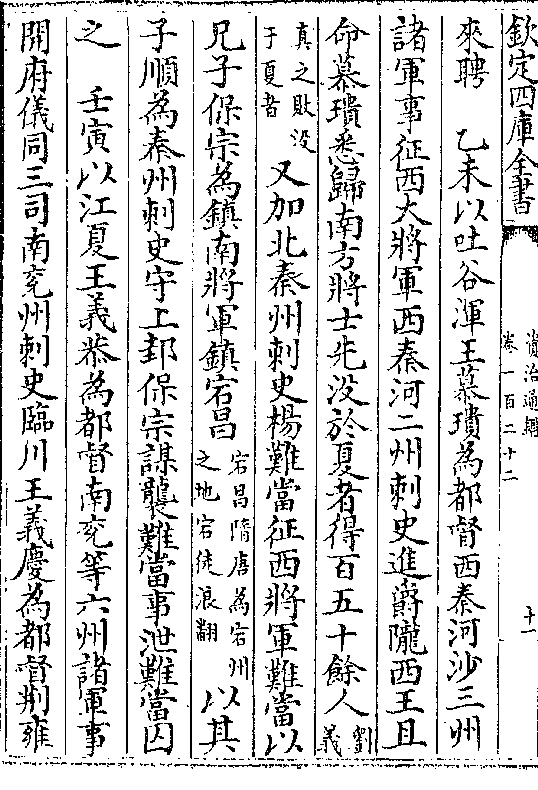 欽定四庫全書
資治通鑑
卷一百二十二
十一
來聘　乙未以吐谷渾王慕璝為都督西秦河沙三州
諸軍事征西大將軍西秦河二州刺史進爵隴西王且
命慕璝悉歸南方將士先沒於夏者得百五十餘人劉義
真之敗沒于夏者　又加北秦州刺史楊難當征西將軍難當以
兄子保宗為鎮南將軍鎮宕昌宕昌隋唐為宕州之地宕徒浪翻　以其
子順為秦州刺史守上邽保宗謀襲難當事泄難當囚
之　壬寅以江夏王義恭為都督南兗等六州諸軍事
開府儀同三司南兗州刺史臨川王義慶為都督荆雍